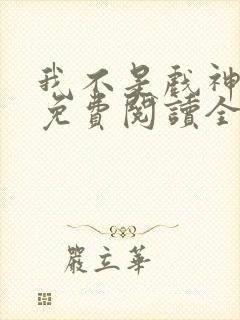 我不是戲神
免費閱讀全
嚴立華